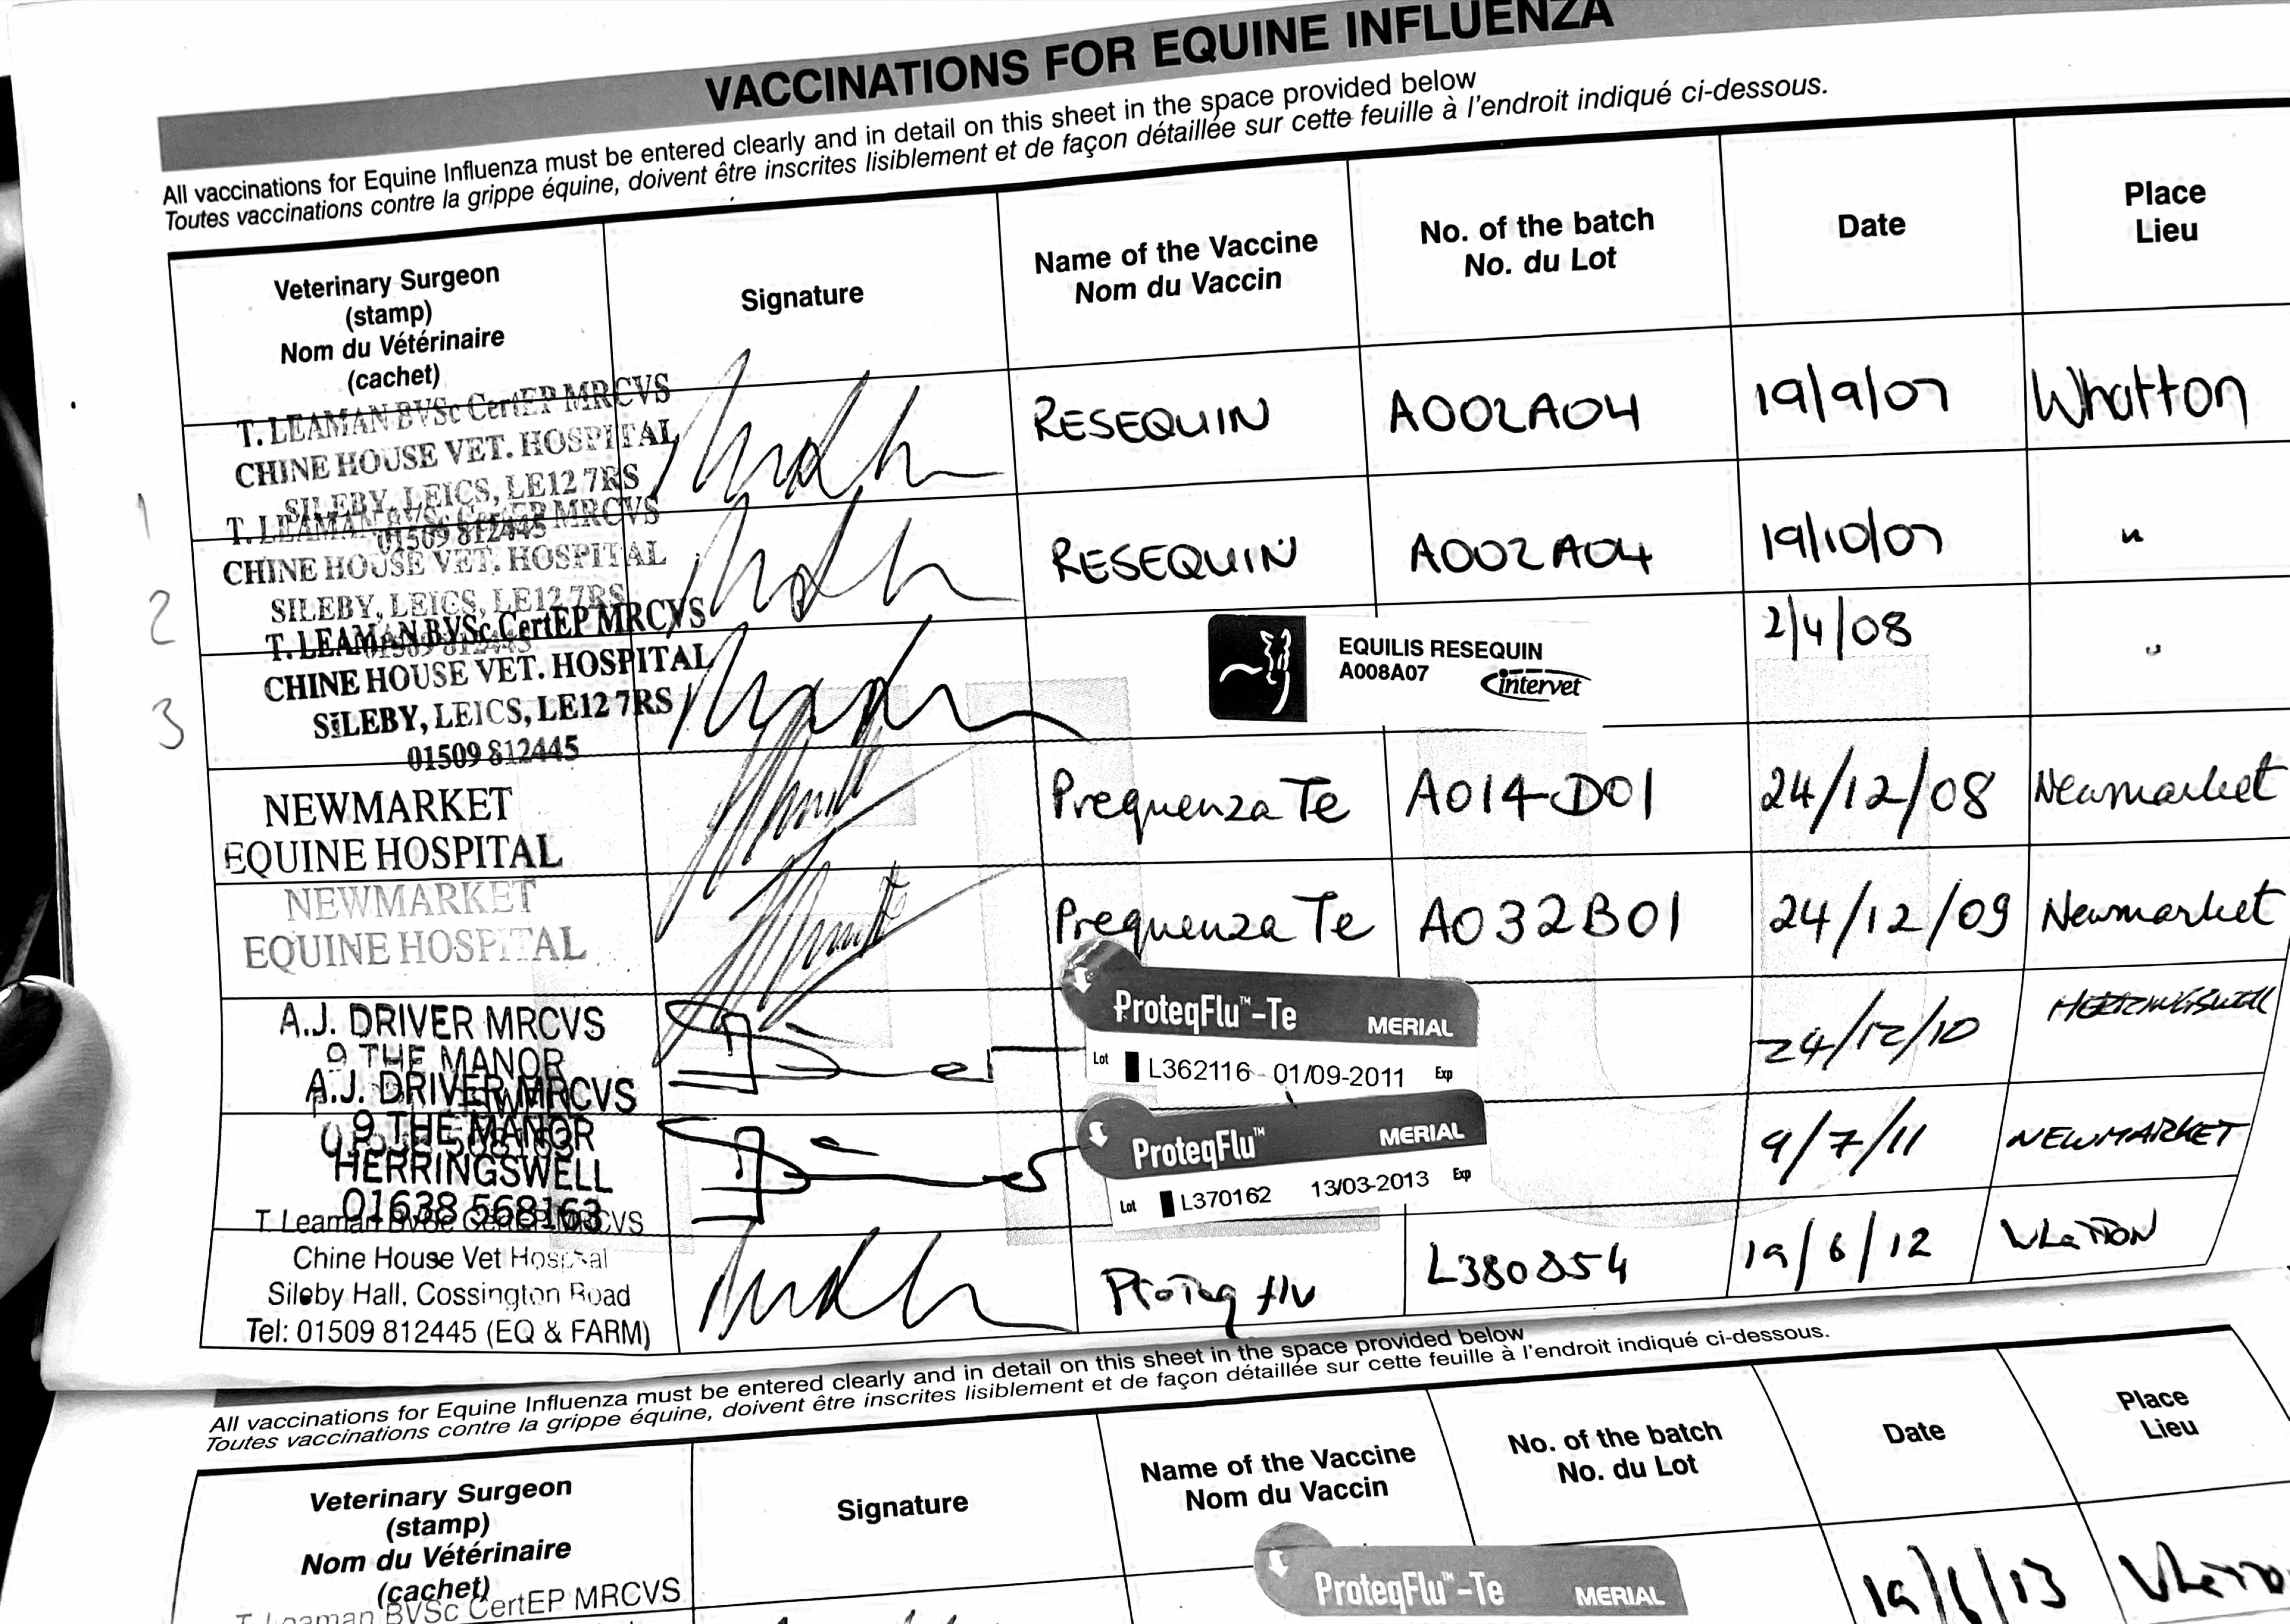 VACCINATIONS FOR EQUINE INFLUENZA
All vaccinations for Equine Influenza must be entered clearly and in detail on this sheet in the space provided below
Toutes vaccinations contre la grippe équine, doivent être inscrites lisiblement et de façon détaillée sur cette feuille à l'endroit indiqué ci-dessous.
Veterinary Surgeon
(stamp)
Nom du Vétérinaire
(cachet)
Signature
Name of the Vaccine
Nom du Vaccin
No. of the batch
No. du Lot
Date
Place
Lieu
1
T. LEAMAN BVSc CertEP MRCVS
CHINE HOUSE VET. HOSPITAL
SILEBY, LEICS, LE12 7RS
01509 812445
RESEQUIN
A002A04
19/9/07
Whatton
2
T. LEAMAN BVSc CertEP MRCVS
CHINE HOUSE VET. HOSPITAL
SILEBY, LEICS, LE12 7RS
01509 812445
RESEQUIN
A002A04
19/10/07
"
3
T. LEAMAN BVSc CertEP MRCVS
CHINE HOUSE VET. HOSPITAL
SILEBY, LEICS, LE12 7RS
01509 812445
EQUILIS RESEQUIN
A008A07
intervet
2/4/08
"
NEWMARKET
EQUINE HOSPITAL
Prequenza Te
A014D01
24/12/08
Newmarket
NEWMARKET
EQUINE HOSPITAL
Prequenza Te
A032B01
24/12/09
Newmarket
A.J. DRIVER MRCVS
9 THE MANOR
ProteqFlu™-Te
MERIAL
Lot L362116 01/09-2011 Exp
24/12/10
HERRINGSWELL
A.J. DRIVER MRCVS
9 THE MANOR
HERRINGSWELL
01638 568163
ProteqFlu™
MERIAL
Lot L370162 13/03-2013 Exp
9/7/11
NEWMARKET
T. Leaman BVSc CertEP MRCVS
Chine House Vet Hospital
Sileby Hall, Cossington Road
Tel: 01509 812445 (EQ & FARM)
Proteq flu
L380854
19/6/12
Whatton
All vaccinations for Equine Influenza must be entered clearly and in detail on this sheet in the space provided below
Toutes vaccinations contre la grippe équine, doivent être inscrites lisiblement et de façon détaillée sur cette feuille à l'endroit indiqué ci-dessous.
Veterinary Surgeon
(stamp)
Nom du Vétérinaire
(cachet)
Signature
Name of the Vaccine
Nom du Vaccin
No. of the batch
No. du Lot
Date
Place
Lieu
T. Leaman BVSc CertEP MRCVS
ProteqFlu™-Te
MERIAL
19/6/13